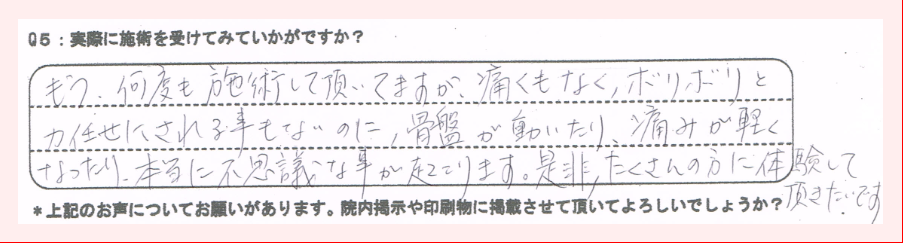 Q5：実際に施術を受けてみていかがですか？
もう、何度も施術して頂いてますが、痛くもなく、ボリボリと
力任せにされる事もないのに、骨盤が動いたり、痛みが軽く
なったり、本当に不思議な事が起こります。是非、たくさんの方に体験して
頂きたいです
＊上記のお声についてお願いがあります。院内掲示や印刷物に掲載させて頂いてよろしいでしょうか？